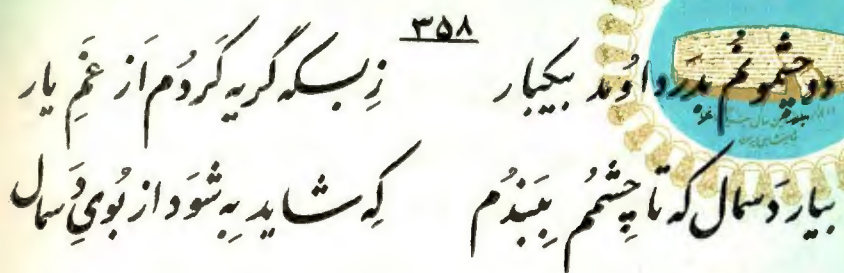 ۳۵۸
دو چشمونُم بدَرد اومد بیکبار زِبسکه گریه کَردُم اَز غَمِ یار
بیار دَسمال که تا چِشمُم بِبَندُم که شاید بِه شَود از بُویِ دَسمال